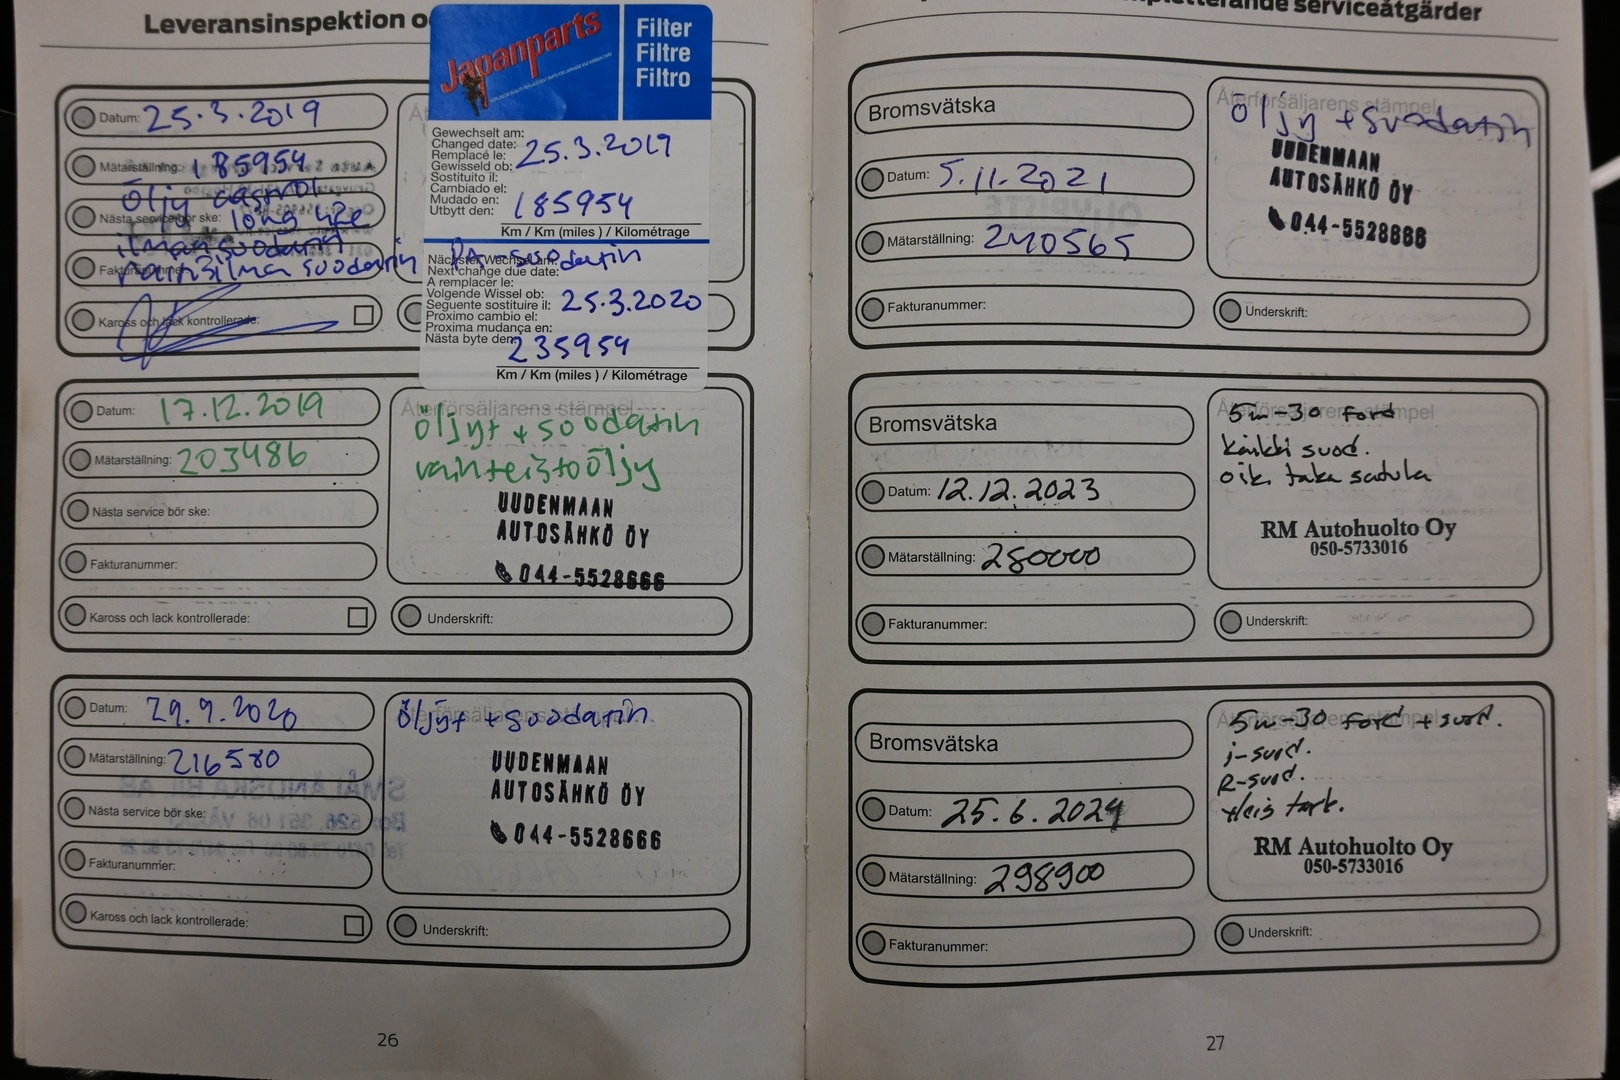 Leveransinspektion o
Japanparts
Filter
Filtre
Filtro
Datum: 25.3.2019
Mätarställning: 185954
Öljy castrol
Nästa service bör ske: long life
ilmansuodatin
Fakturanummer:
raitisilma suodatin PA-suodatin
Kaross och lack kontrollerade:
Gewechselt am:
Changed date:
Remplacé le:
Gewisseld ob:
Sostituito il:
Cambiado el:
Mudado en:
Utbytt den:
25.3.2019
185954
Km / Km (miles ) / Kilométrage
Nächster Wechsel am:
Next change due date:
A remplacer le:
Volgende Wissel ob:
Seguente sostituire il:
Próximo cambio el:
Proxima mudança en:
Nästa byte den:
25.3.2020
235954
Km / Km (miles ) / Kilométrage
Datum: 17.12.2019
Mätarställning: 203486
Nästa service bör ske:
Fakturanummer:
Kaross och lack kontrollerade:
Återförsäljarens stämpel
Öljyt + suodatin
vaihteistoöljy
UUDENMAAN
AUTOSÄHKÖ OY
044-5528666
Underskrift:
Datum: 29.9.2020
Mätarställning: 216580
Nästa service bör ske:
Fakturanummer:
Kaross och lack kontrollerade:
Öljyt + suodatin
UUDENMAAN
AUTOSÄHKÖ OY
044-5528666
Underskrift:
26
serviceåtgärder
Bromsvätska
Datum: 5.11.2021
Mätarställning: 240565
Fakturanummer:
Återförsäljarens stämpel
Öljy + suodatin
UUDENMAAN
AUTOSÄHKÖ OY
044-5528666
Underskrift:
Bromsvätska
Datum: 12.12.2023
Mätarställning: 280000
Fakturanummer:
Återförsäljarens stämpel
5w-30 ford
kaikki suod.
oik. taka satula
RM Autohuolto Oy
050-5733016
Underskrift:
Bromsvätska
Datum: 25.6.2024
Mätarställning: 298900
Fakturanummer:
5w-30 ford + suod.
i-suod.
R-suod.
yleis tark.
RM Autohuolto Oy
050-5733016
Underskrift:
27